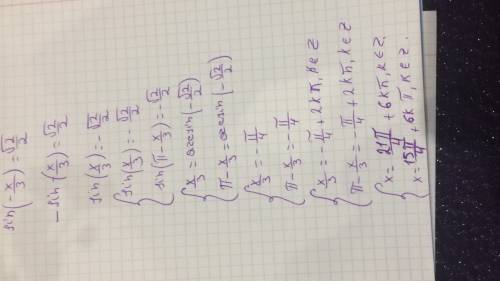 sin(-x/3) = √2/2
-sin(x/3) = √2/2
sin(x/3) = -√2/2
{ sin(x/3) = -√2/2
sin(π - x/3) = -√2/2
{ x/3 = arcsin(-√2/2)
π - x/3 = arcsin(-√2/2)
{ x/3 = -π/4
π - x/3 = -π/4
{ x/3 = -π/4 + 2kπ, k∈Z
π - x/3 = -π/4 + 2kπ, k∈Z
{ x = 21π/4 + 6kπ, k∈Z.
x = 15π/4 + 6kπ, k∈Z.